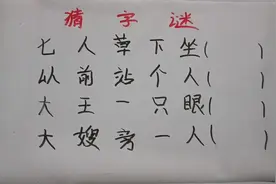 猜字谜
七人草下坐( )
从前站个人( )
大王一只眼( )
大嫂旁一人( )